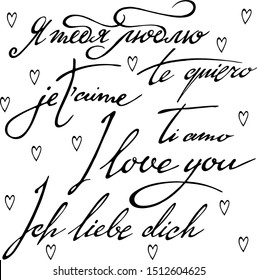 Я тебя люблю
te quiero
je t'aime
ti amo
I love you
Ich liebe dich
shutterstock.com · 1512604625